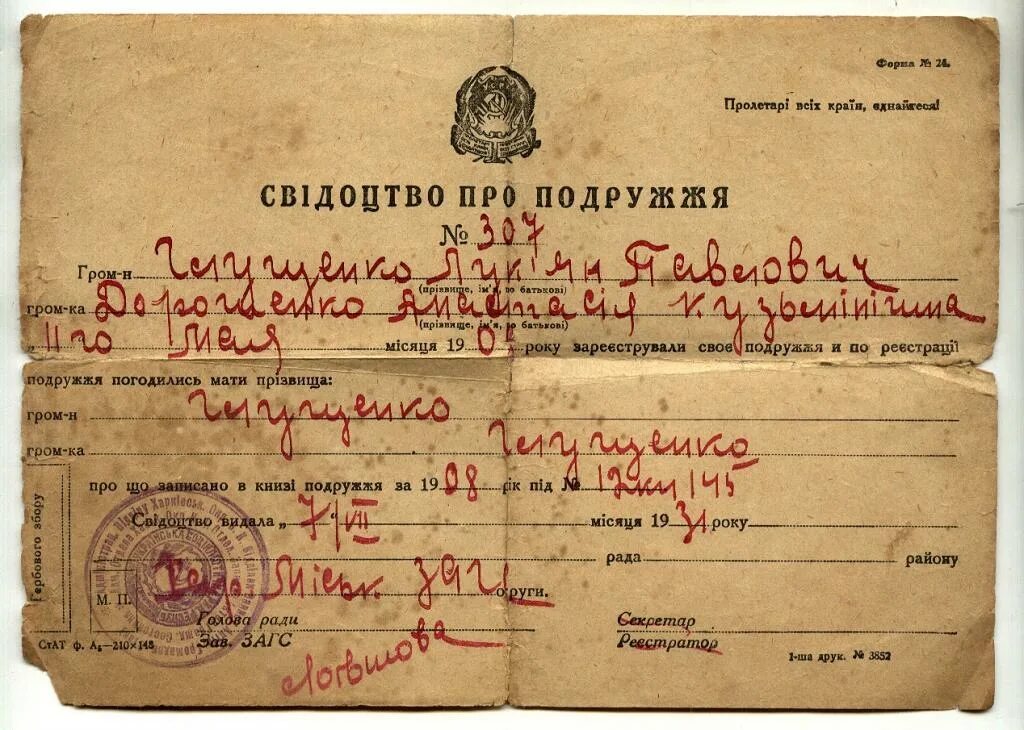 Форма № 24.
Пролетарі всіх країн, єднайтеся!
СВІДОЦТВО ПРО ПОДРУЖЖЯ
№ 307
Гром-н Глущенко Лук'ян Павлович
(прізвище, ім'я, по батькові)
гром-ка Дорошенко Анастасія Кузьмінішна
(прізвище, ім'я, по батькові)
„ 11го Мая місяця 19 року зареєстрували своє подружжя и по реєстрації
подружжя погодились мати прізвища:
гром-н Глущенко
гром-ка Глущенко
про що записано в книзі подружжя за 19 08 рік під № 145
Свідоцтво видала „ 7 " VII місяця 19 31 року
рада району
Харк Міськ ЗАГС округи.
Гербового збору
М. П.
Голова ради
Зав. ЗАГС
Логвинова
Секретар
Реєстратор
СтАТ ф. А₅—210×148
1-ша друк. № 3852